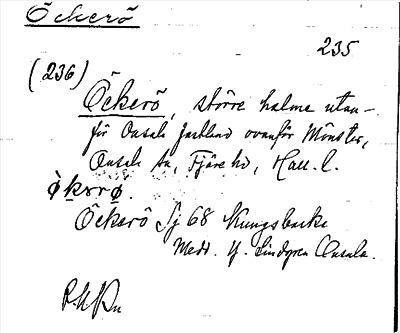 Öckerö
235
(236)
Öckerö, större holme utan-
för Onsala fastland ovanför Mönster,
Onsala sn, Fjäre hd, Hall. l.
Öckerö Sj 68 Kungsbacka
Medd. Y. Lindgren Onsala.